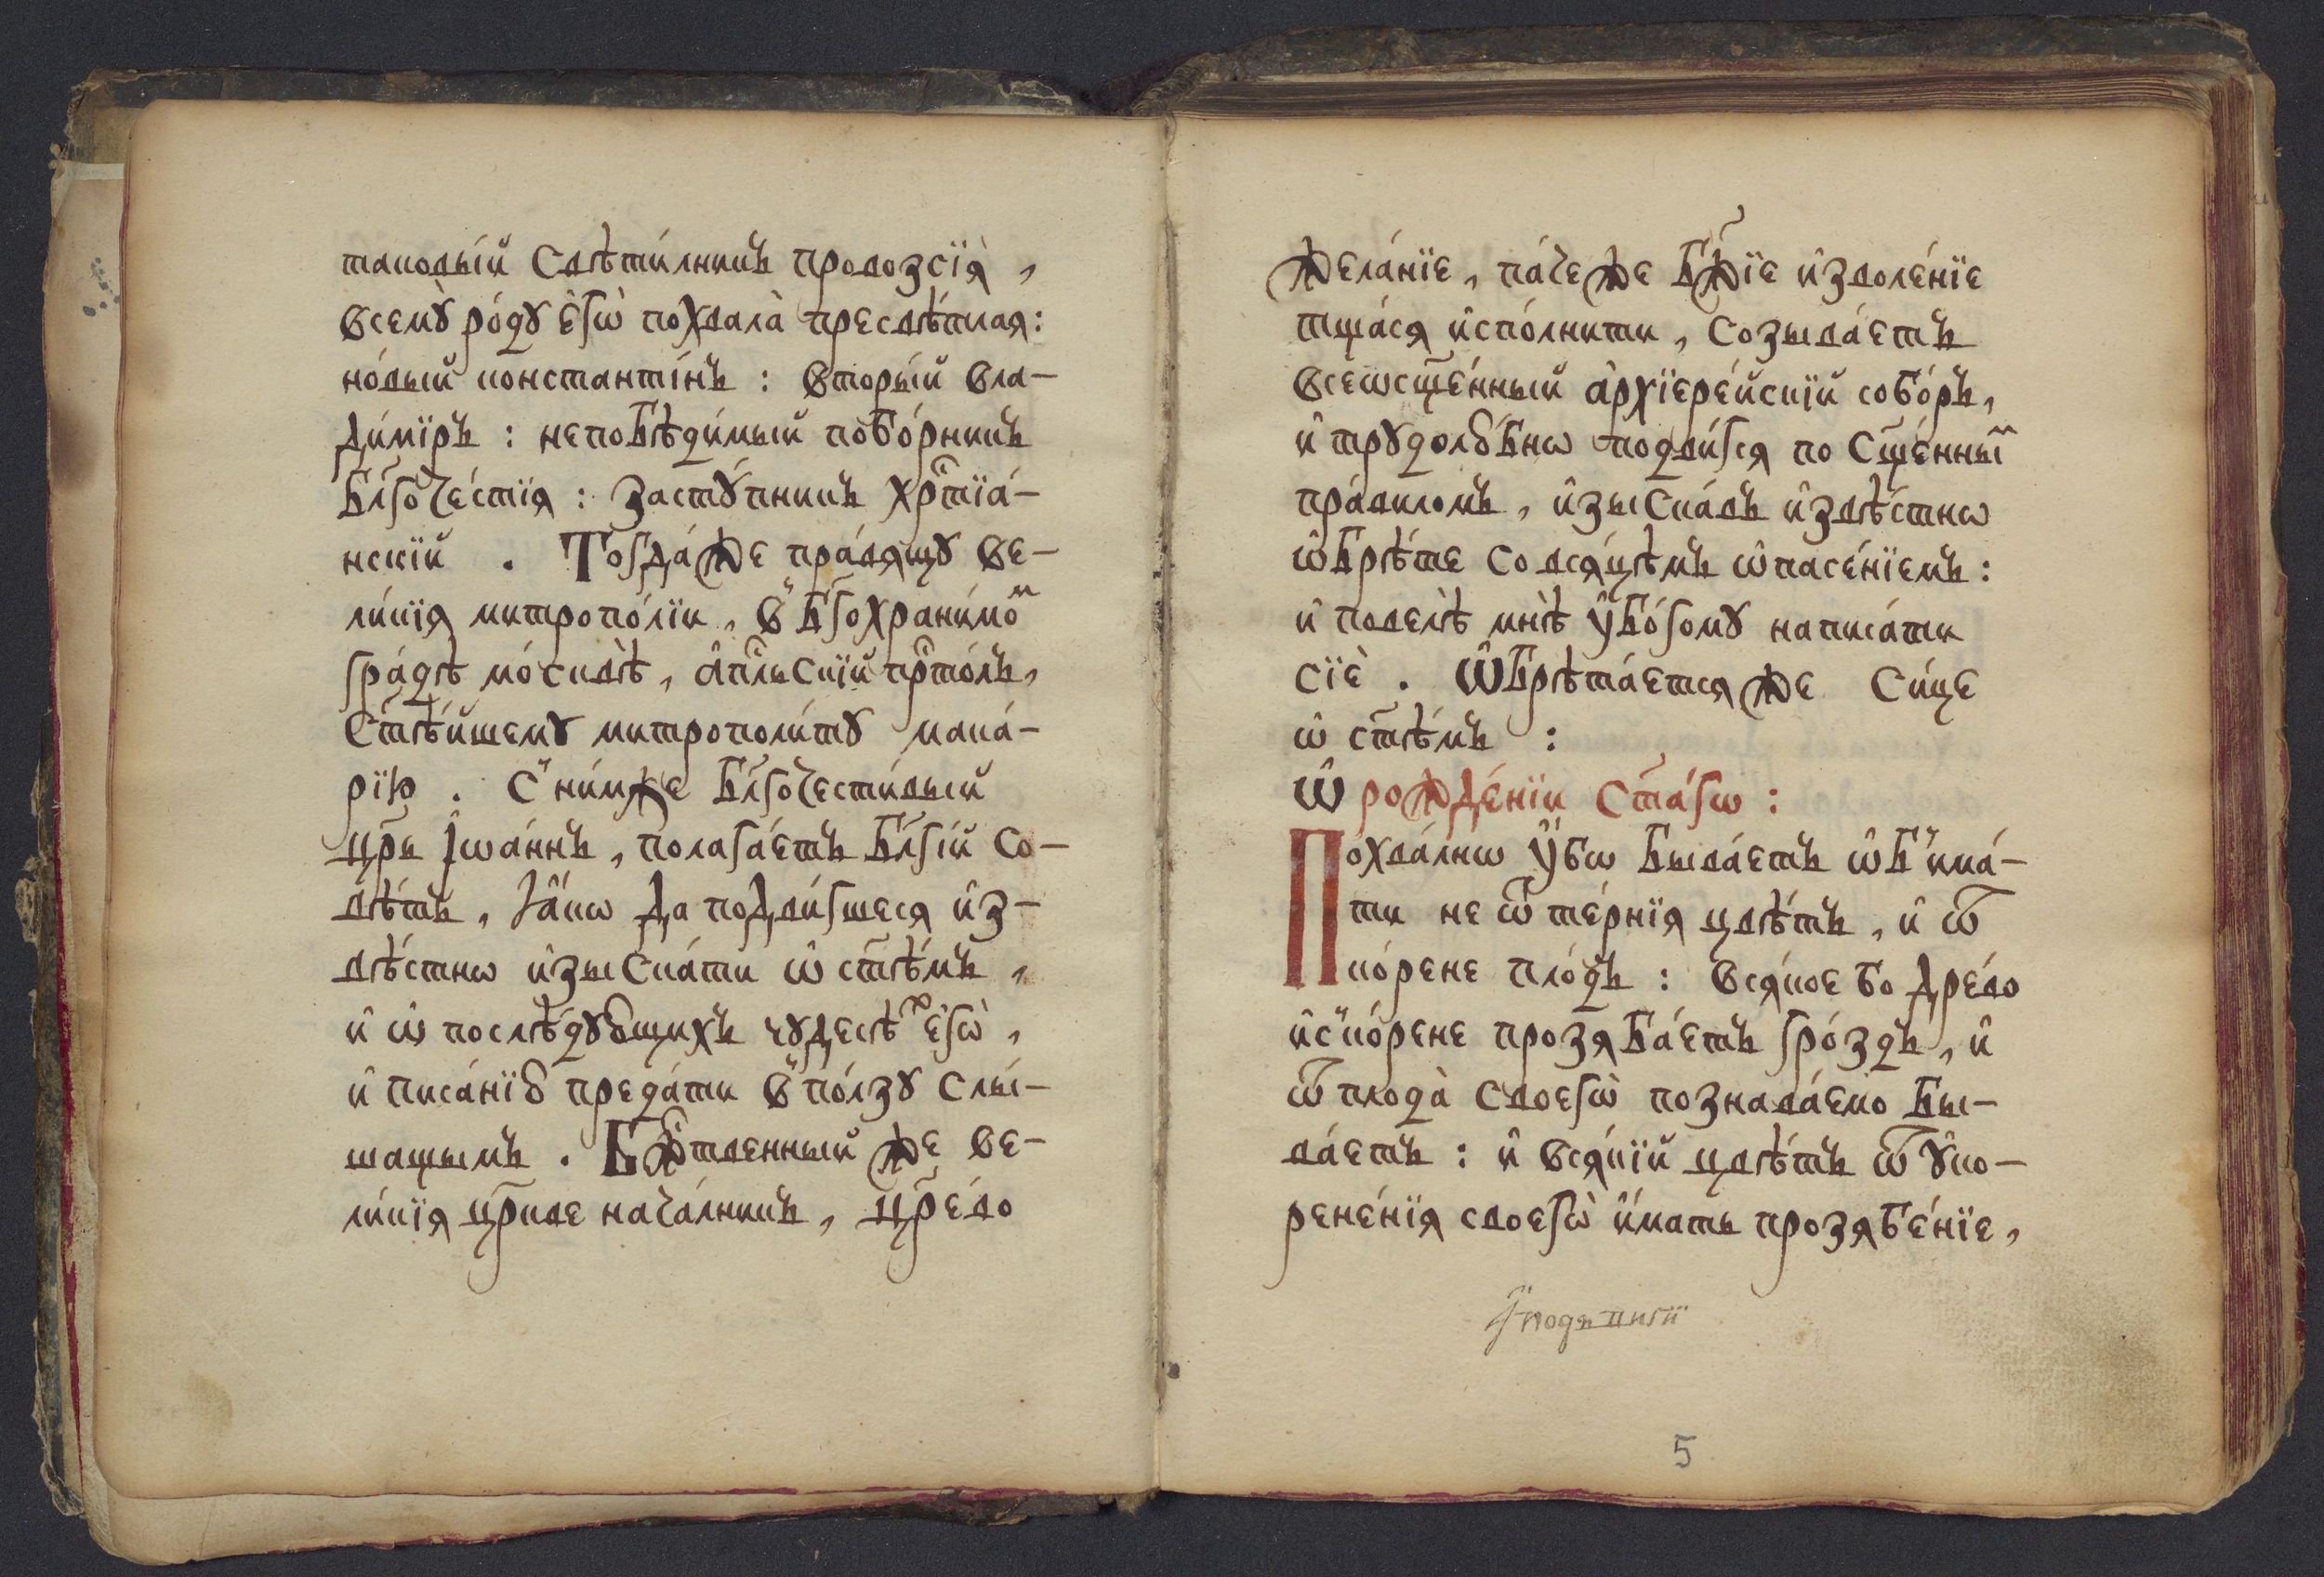 таковы́й свѣти́лникъ провозсїѧ̀,
всемꙋ̀ ро́дꙋ є҆гѡ̀ похвала̀ пресвѣ́тлаѧ:
но́вый константі́нъ : вторы́й вла–
ди́мїръ : непобѣди́мый побо́рникъ
бл҃гоче́стїѧ : застꙋ́пникъ хрⷭ҇тїа́–
нскїй . Тогда́же пра́вѧщꙋ ве–
ли́кїѧ митропо́лїи, в̾ бг҃охрани́моⷨ
гра́дѣ мо́сквѣ, а҆пⷭ҇льскїй прⷭ҇то́лъ,
ст҃ѣ́йшемꙋ митрополи́тꙋ мака́–
рїю . с̾ ни́мже бл҃гочести́вый
цр҃ь і҆ѡа́ннъ, полага́етъ бл҃гі́й со–
вѣ́тъ, ꙗ҆́кѡ да подви́гшесѧ и҆з–
вѣ́стнѡ и҆зыска́ти ѡ҆ ст҃ѣ́мъ,
и҆ ѡ҆ послѣ́дꙋющихъ чꙋдесѣⷯ є҆гѡ̀,
и҆ писа́нїю преда́ти в̾ по́лзꙋ слы́–
шащымъ . Бж҃твенный же ве–
ли́кїѧ цр҃кве нача́лникъ, цр҃е́во
жела́нїе, па́че же бж҃їе и҆зволе́нїе
тща́сѧ и҆спо́лнити, созыва́етъ
всеѡсщ҃е́нный а҆рхїере́йскїй собо́ръ,
и҆ трꙋдолю́бнѡ подви́гсѧ по сщ҃е́нныⷨ
пра́виломъ, и҆зыска́въ и҆звѣ́стнѡ
ѡ҆брѣ́те со всѧ́цѣмъ ѡ҆пасе́нїемъ:
и҆ повелѣ̀ мнѣ̀ ᲂу҆бо́гомꙋ написа́ти
сїѐ . Ѡ҆брѣта́етсѧ же си́це
ѡ҆ ст҃ѣ́мъ :
Ѡ҆ рожде́нїи ст҃а́гѡ :
Похва́лнѡ ᲂу҆́бѡ быва́етъ ѡ҆б̾има́–
ти не ѿ те́рнїѧ цвѣ́тъ, и҆ ѿ
ко́рене пло́дъ : всѧ́кое бо дре́во
и҆с̾ко́рене прозѧба́етъ гро́здъ, и҆
ѿ плода̀ своегѡ̀ познава́емо бы–
ва́етъ : и҆ всѧ́кїй цвѣ́тъ ѿ ᲂу҆ко–
рене́нїѧ своегѡ̀ и҆́мать прозѧбе́нїе,
5